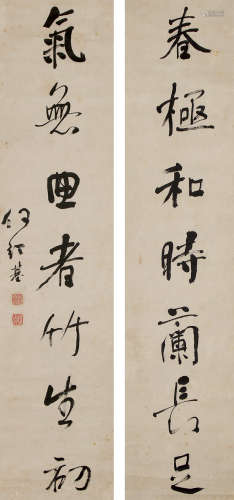 春極和時蘭長足
氣無曲者竹生初
何紹基